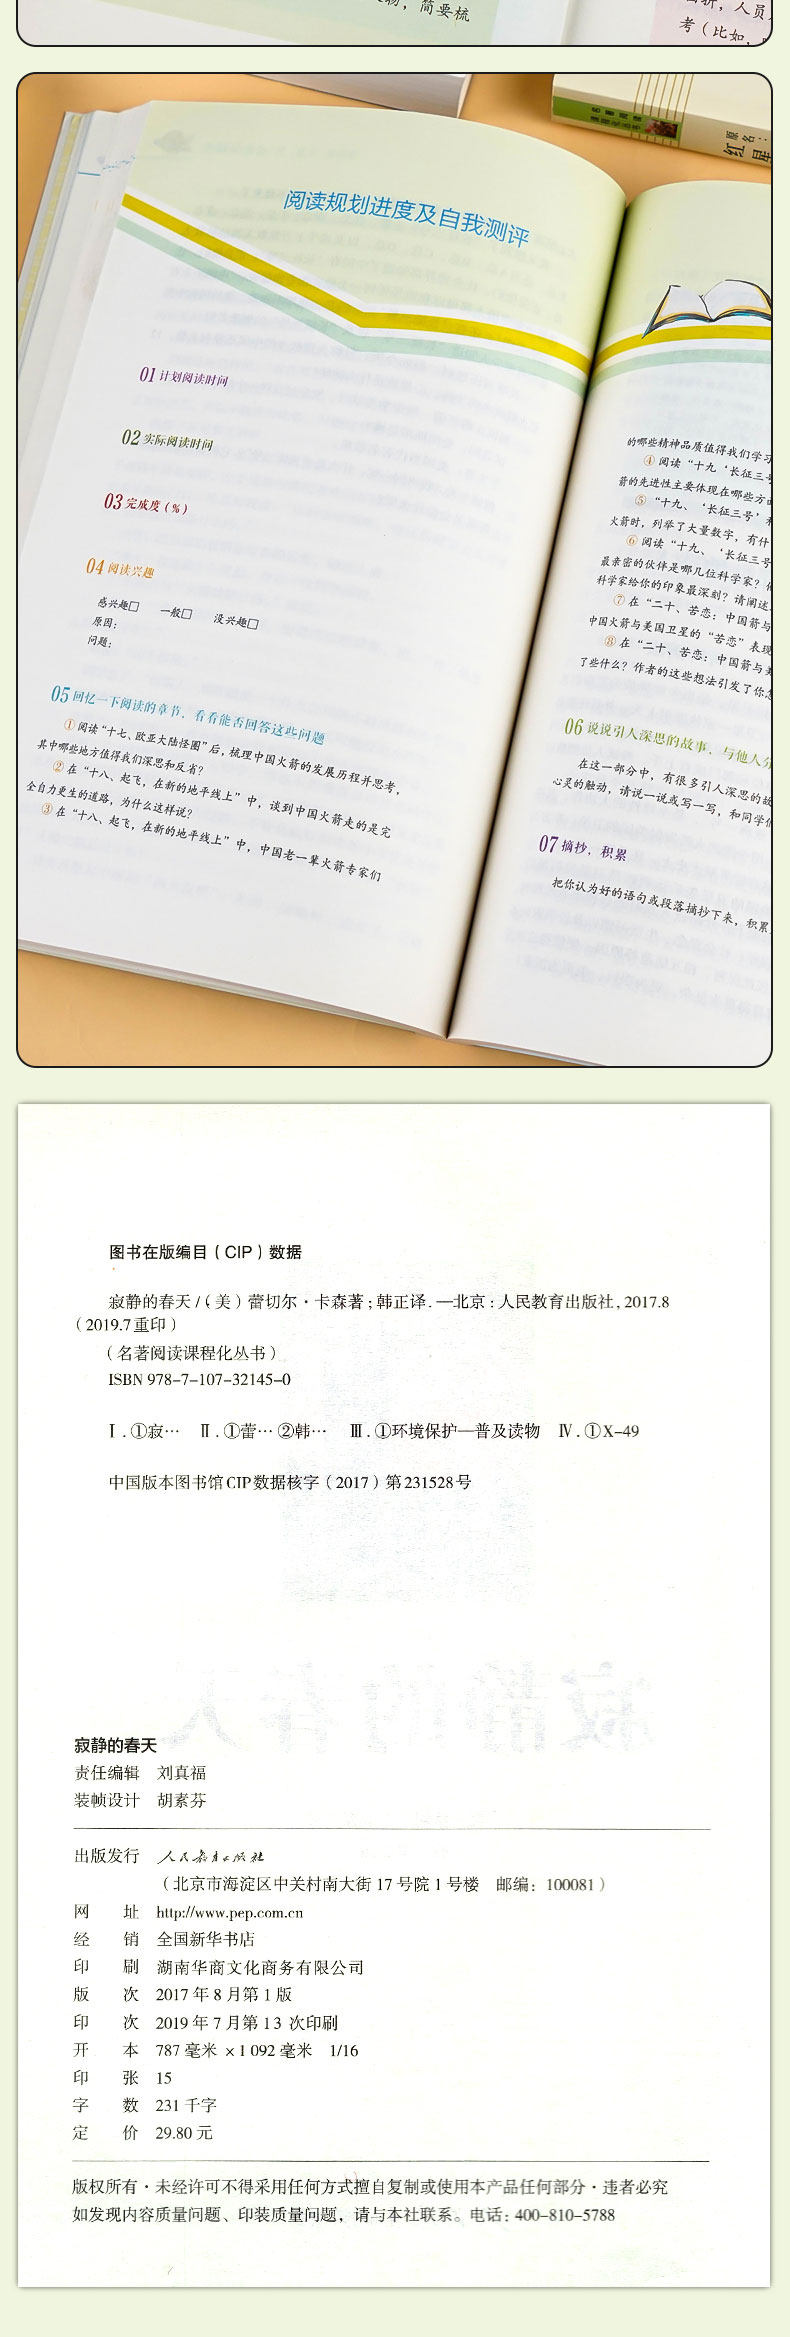 物，简要梳
人员
考（比如，
名著阅读
课程化丛书
原名：
红星
阅读规划进度及自我测评
01 计划阅读时间
02 实际阅读时间
03 完成度（%）
04 阅读兴趣
感兴趣□ 一般□ 没兴趣□
原因：
问题：
05 回忆一下阅读的章节，看看能否回答这些问题
① 阅读“十七、欧亚大陆怪圈”后，梳理中国火箭的发展历程并思考，
其中哪些地方值得我们深思和反省？
② 在“十八、起飞，在新的地平线上”中，谈到中国火箭走的是完
全自力更生的道路，为什么这样说？
③ 在“十八、起飞，在新的地平线上”中，中国老一辈火箭专家们
的哪些精神品质值得我们学习
④ 阅读“十九、‘长征三号
箭的先进性主要体现在哪些方面
⑤ “十九、‘长征三号’
火箭时，列举了大量数字，有什
⑥ 阅读“十九、‘长征三号
最亲密的伙伴是哪几位科学家？
科学家给你的印象最深刻？请阐述
⑦ 在“二十、苦恋：中国箭与
中国火箭与美国卫星的“苦恋”表现
⑧ 在“二十、苦恋：中国箭与美
了些什么？作者的这些想法引发了你怎
06 说说引人深思的故事，与他人分
在这一部分中，有很多引人深思的故
心灵的触动，请说一说或写一写，和同学们
07 摘抄，积累
把你认为好的语句或段落摘抄下来，积累
图书在版编目（CIP）数据
寂静的春天 /（美）蕾切尔·卡森著；韩正译. —北京：人民教育出版社，2017.8
（2019.7重印）
（名著阅读课程化丛书）
ISBN 978-7-107-32145-0
Ⅰ . ①寂… Ⅱ . ①蕾… ②韩… Ⅲ . ①环境保护—普及读物 Ⅳ . ①X-49
中国版本图书馆CIP数据核字（2017）第231528号
寂静的春天
责任编辑 刘真福
装帧设计 胡素芬
出版发行 人民教育出版社
（北京市海淀区中关村南大街 17 号院 1 号楼 邮编：100081）
网 址 http://www.pep.com.cn
经 销 全国新华书店
印 刷 湖南华商文化商务有限公司
版 次 2017 年 8 月第 1 版
印 次 2019 年 7 月第 13 次印刷
开 本 787 毫米 ×1 092 毫米 1/16
印 张 15
字 数 231 千字
定 价 29.80 元
版权所有·未经许可不得采用任何方式擅自复制或使用本产品任何部分·违者必究
如发现内容质量问题、印装质量问题，请与本社联系。电话：400-810-5788